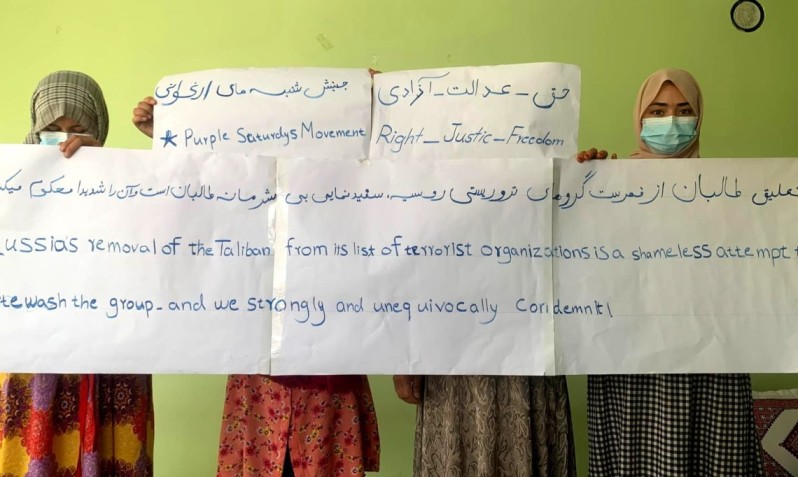 جنبش شنبه های ارغوانی
* Purple Saturdys Movement
حق - عدالت - آزادی
Right - Justic - Freedom
تعلیق طالبان از فهرست گروه‌های تروریستی روسیه، سفیدنمایی بی شرمانه طالبان است و آن را شدیدا محکوم میک
ussia's removal of the Taliban from its list of terrorist organizations is a shameless attempt t
tewash the group - and we strongly and unequivocally condemn it!